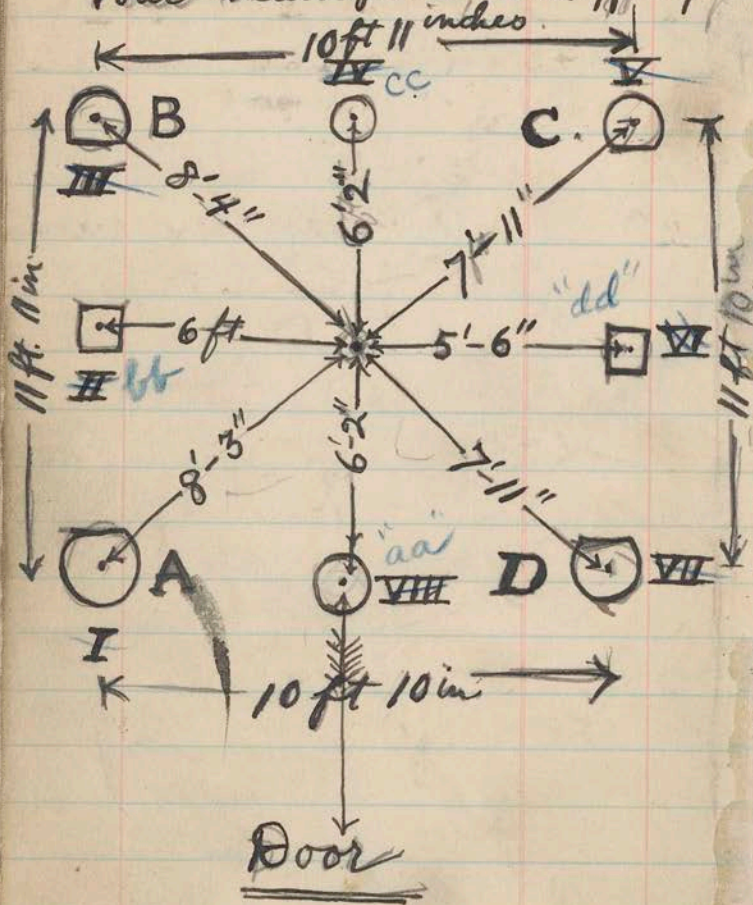 10 ft 11 inches
IV cc V
B C.
III
8'-4" 6'2" 7'-11"
"dd"
11 ft. 11 in 6 ft 5'-6" VI 11 ft 10 in
II bb
8'-3" 6'-2" 7'-11"
"aa"
A VIIII D VII
I
10 ft 10 in
Door